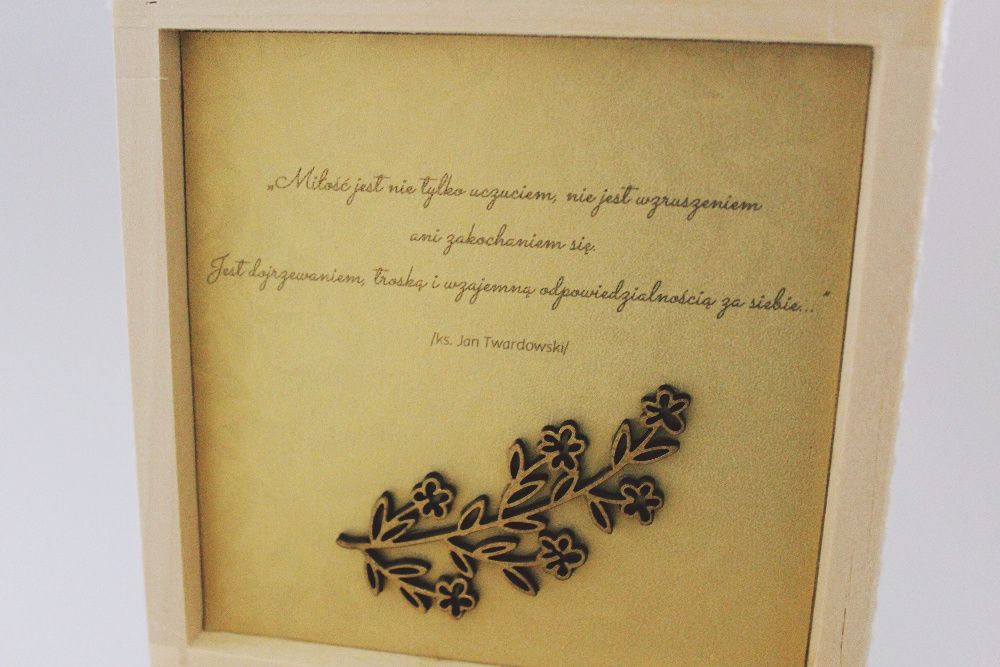 „Miłość jest nie tylko uczuciem, nie jest wzruszeniem
ani zakochaniem się.
Jest dojrzewaniem, troską i wzajemną odpowiedzialnością za siebie..."
/ks. Jan Twardowski/